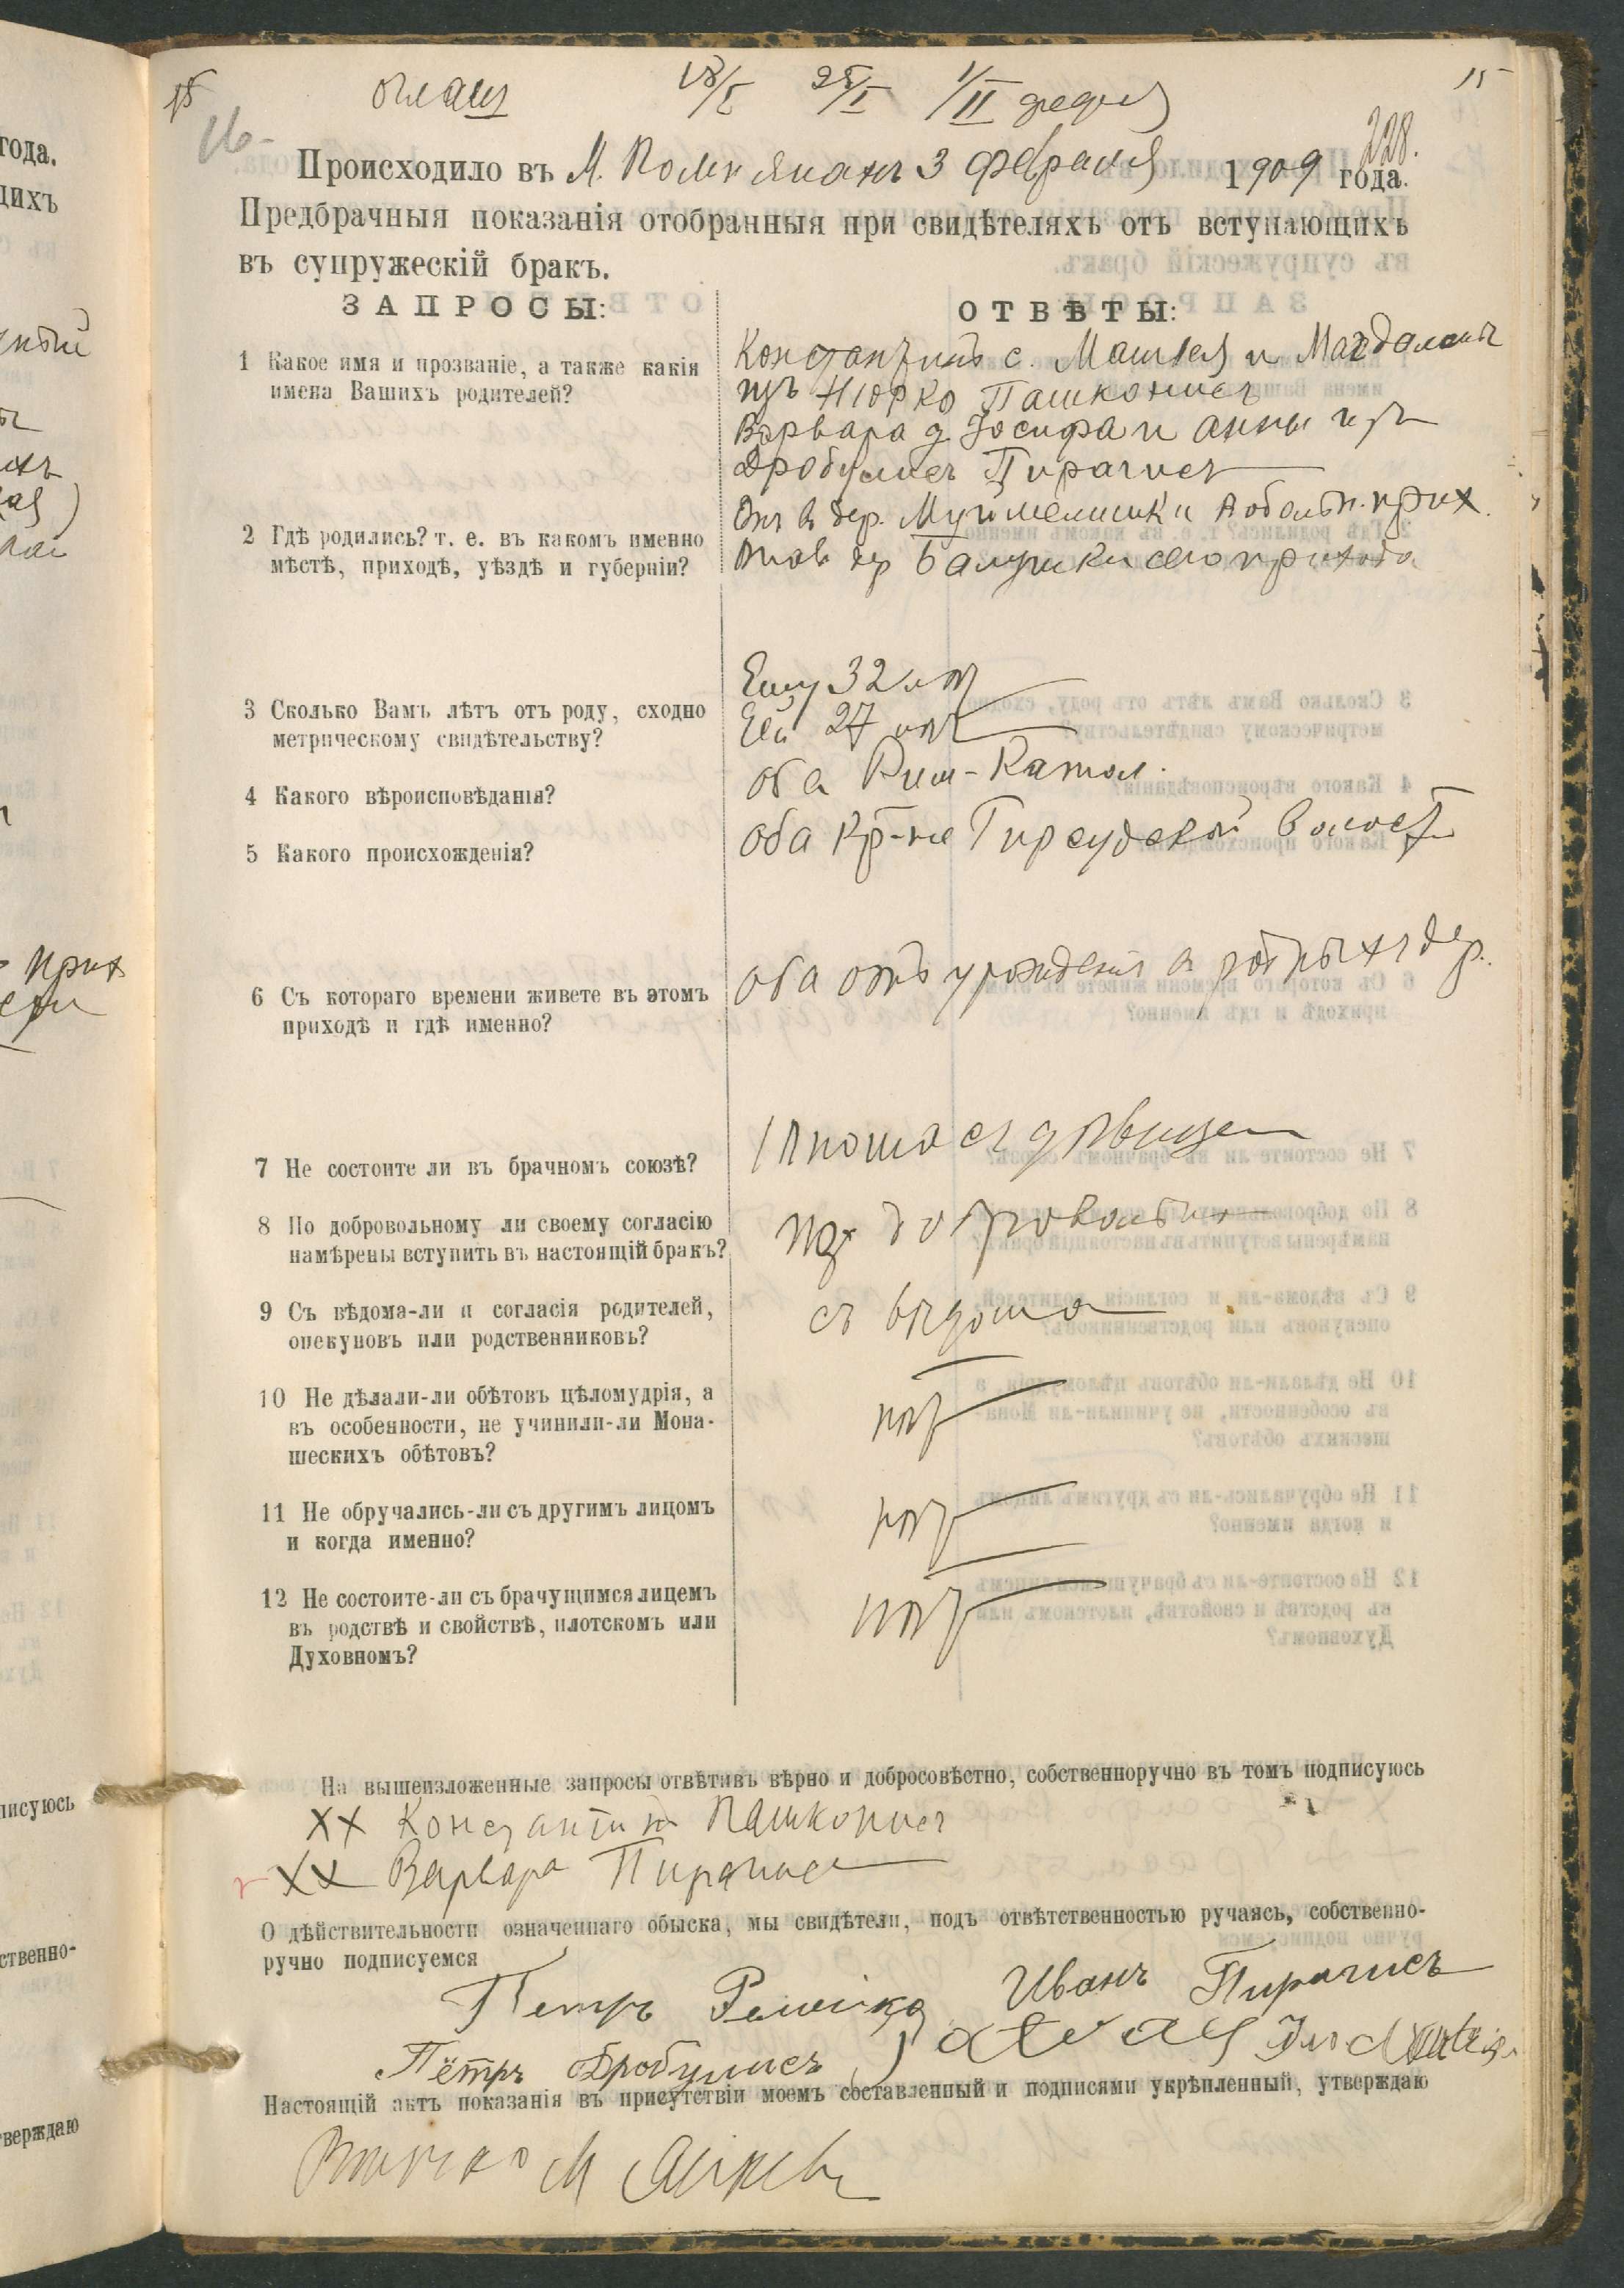 15
18/I 25/I 1/II
16
228.
Происходило въ М. 3 Февраля 1909 года.
Предбрачныя показанія отобранныя при свидѣтеляхъ отъ вступающихъ
въ супружескій бракъ.
ЗАПРОСЫ:
ОТВѢТЫ:
1 Какое имя и прозваніе, а также какія
имена Вашихъ родителей?
Константинъ с. Матвея и Магдалены
изъ Нюрко Пашконисъ
Варвара д. Іосифа и Анны изъ
Дробулисъ Пирагисъ
2 Гдѣ родились? т. е. въ какомъ именно
мѣстѣ, приходѣ, уѣздѣ и губерніи?
Онъ въ дер. прих.
Она въ дер Балушки сего прихода
3 Сколько Вамъ лѣтъ отъ роду, сходно
метрическому свидѣтельству?
Ему 32 лѣтъ
Ей 27 лѣтъ
4 Какого вѣроисповѣданія?
оба Рим-Катол.
5 Какого происхожденія?
оба кр-не Гирсудской волости
6 Съ котораго времени живете въ этомъ
приходѣ и гдѣ именно?
оба отъ урожденія въ дер.
7 Не состоите ли въ брачномъ союзѣ?
Юноша съ дѣвицею
8 По добровольному ли своему согласію
намѣрены вступить въ настоящій бракъ?
добровольно
9 Съ вѣдома-ли и согласія родителей,
опекуновъ или родственниковъ?
съ вѣдома
10 Не дѣлали-ли обѣтовъ цѣломудрія, а
въ особенности, не учинили-ли Мона-
шескихъ обѣтовъ?
нѣтъ
11 Не обручались-ли съ другимъ лицомъ
и когда именно?
нѣтъ
12 Не состоите-ли съ брачущимся лицемъ
въ родствѣ и свойствѣ, плотскомъ или
Духовномъ?
нѣтъ
На вышеизложенные запросы отвѣтивъ вѣрно и добросовѣстно, собственноручно въ томъ подписуюсь
XX Константинъ Пашконисъ
XX Варвара Пирагисъ
О дѣйствительности означеннаго обыска, мы свидѣтели, подъ отвѣтственностью ручаясь, собственно-
ручно подписуемся
Петръ Иванъ Пирагисъ
Пётръ Дробулисъ
Настоящій актъ показанія въ присутствіи моемъ составленный и подписями укрѣпленный, утверждаю